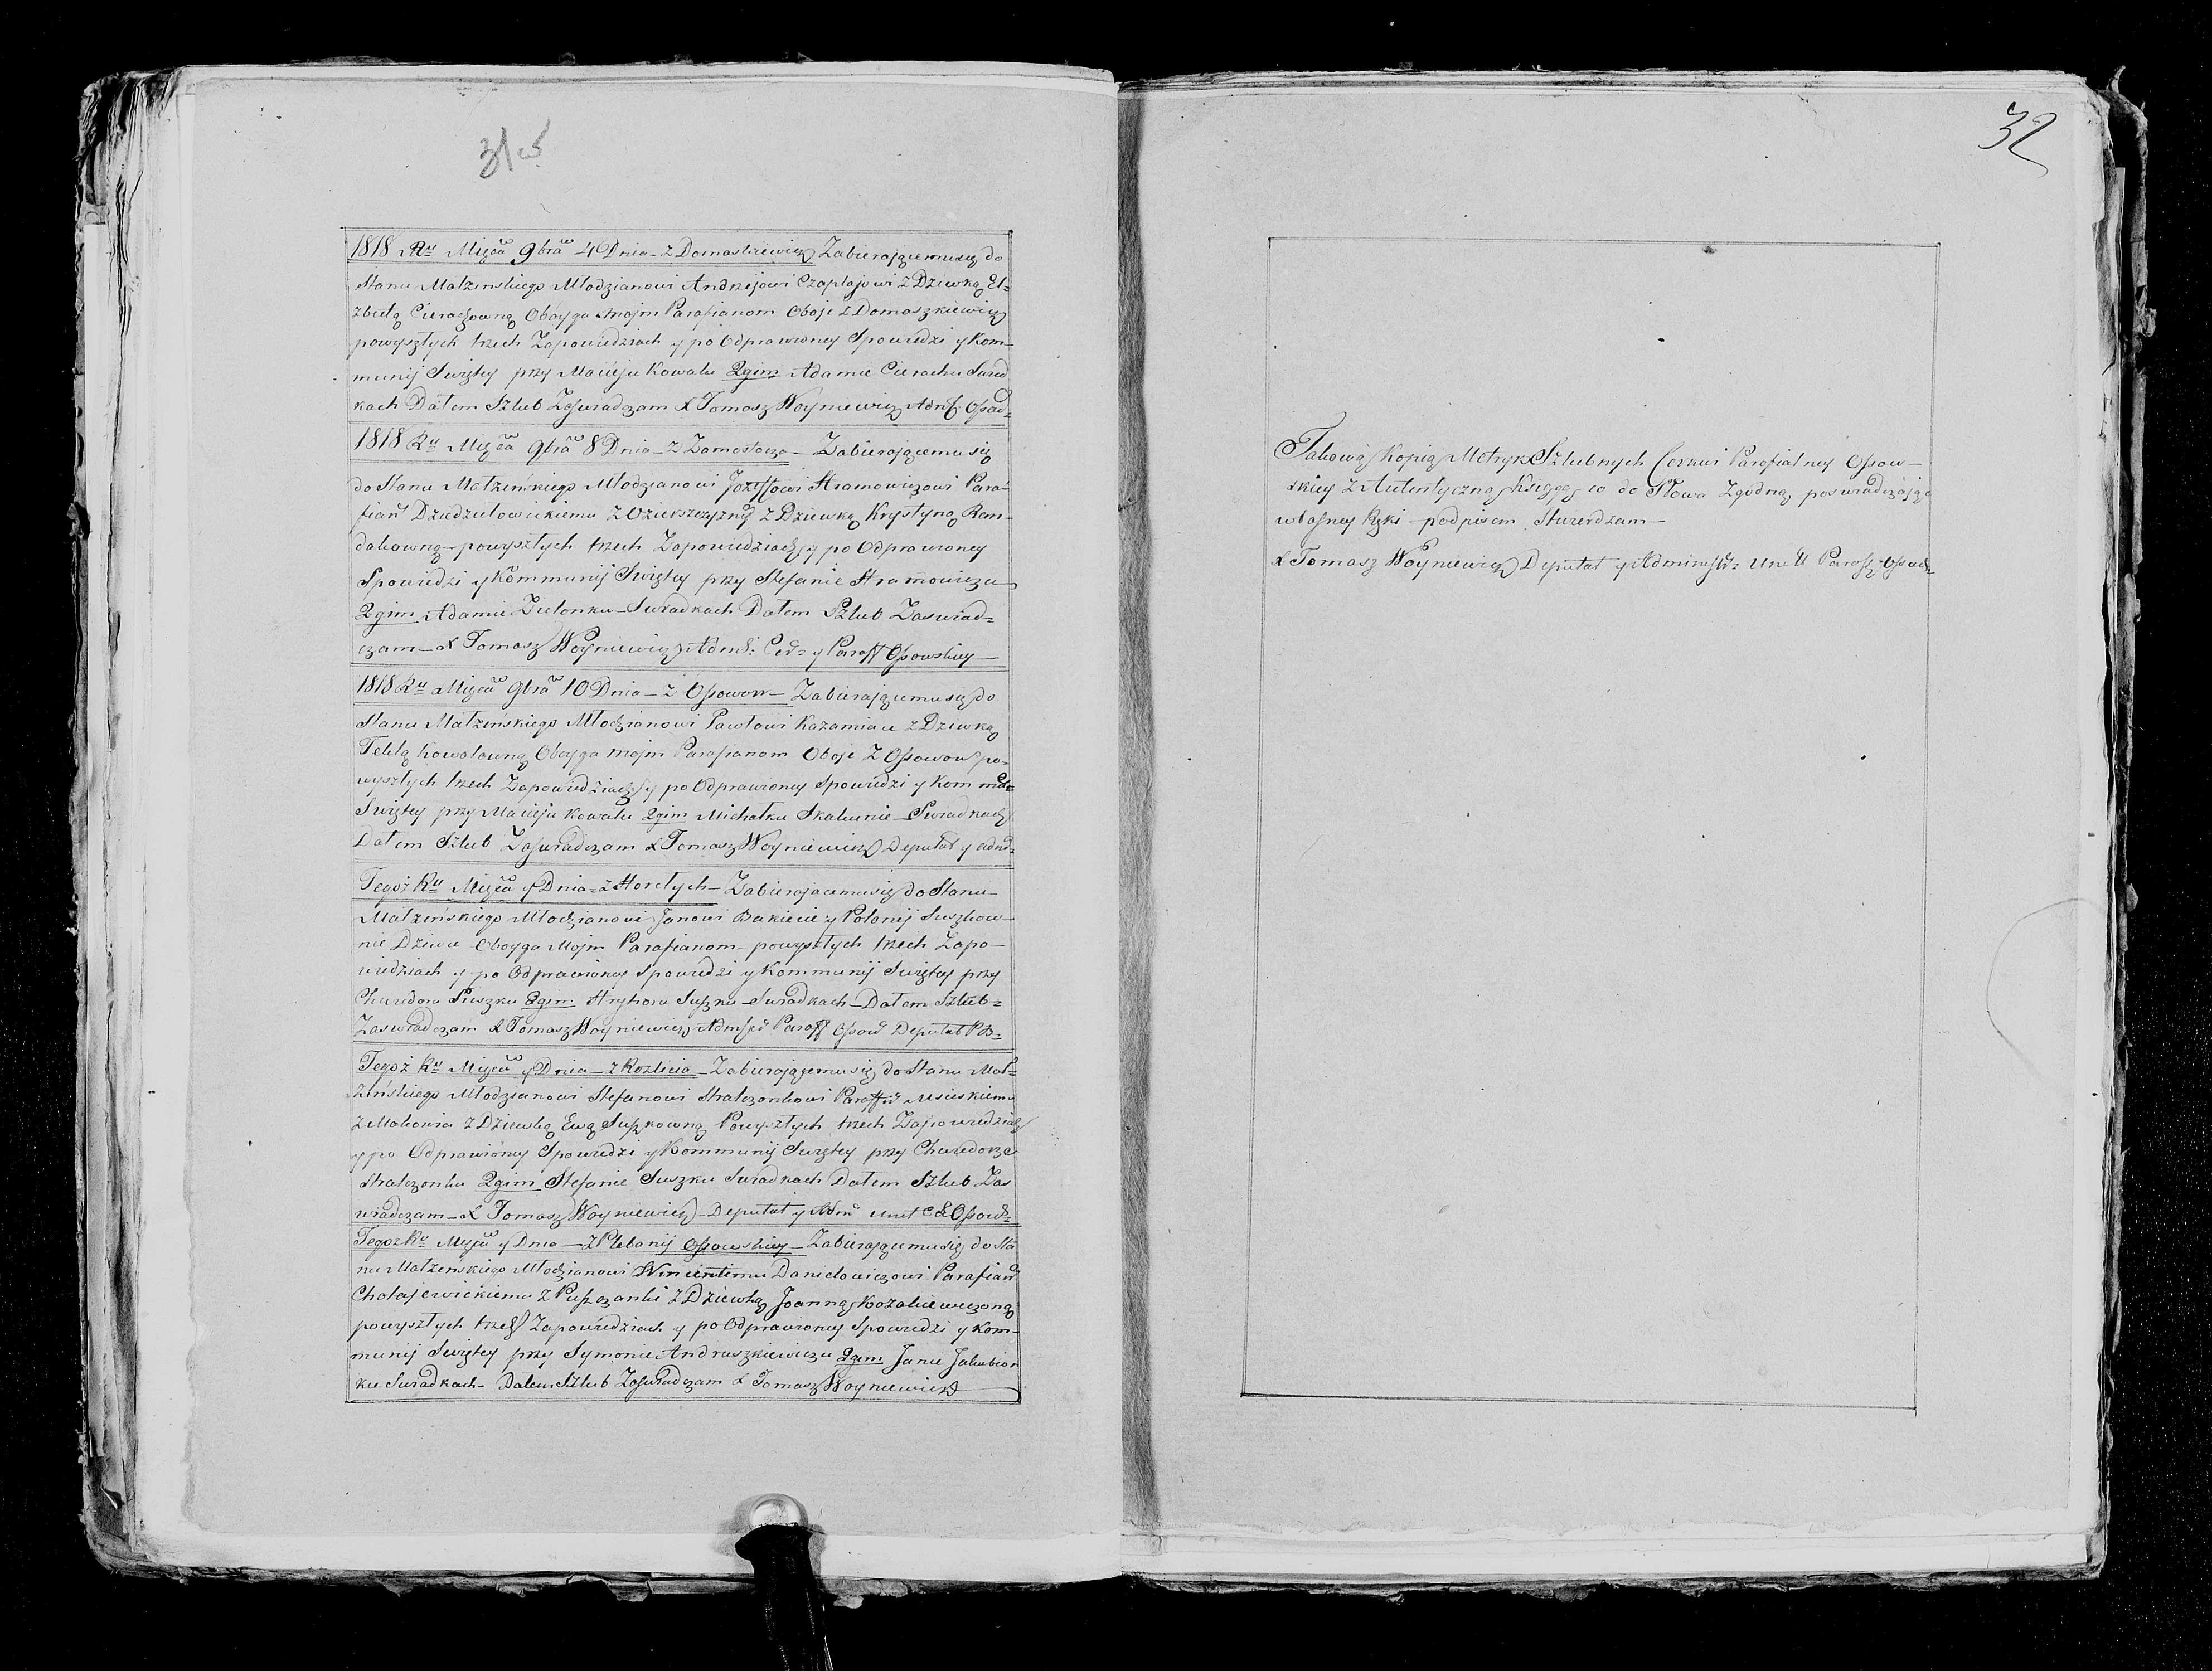 31 об
1818 Ru Mięca 9bra 4 Dnia - z Domaszkiewicz Zabierającemu się do
Stanu Małżenskiego Młodzianowi Andrzejowi Czaplajowi z Dziewką El=
zbietą Cierachowną Oboyga mojm Parafianom Oboje z Domaszkiewicz
powyszłych trzech Zapowiedziach y po Odprawioney Spowiedzi y Kom-
munij Swiętey przy Macieju Kowalu 2gim Adamie Cierachu Swiad
kach Dałem Szlub Zaswiadczam X Tomasz Woyniewicz Adm: Ossow=
1818 Ru Mięca 9bra 8 Dnia - z Zamostocza - Zabierającemu się
do Stanu Małżeńskiego Młodzianowi Jozeffowi Hramowiczowi Para-
fian Dziedziełowickiemu z Ozierszczyzny z Dziewką Krystyną Ran-
dakowną - powyszłych trzech Zapowiedziach y po Odprawioney
Spowiedzi y Kommunij Swiętey przy Stefanie Hramowiczu
2gim Adamie Zielonku - Swiadkach Dałem Szlub Zaswiad=
czam - X Tomasz Woyniewicz Adm: Cer= y Paraff Ossowskiey
1818 Ru Mięca 9bra 10 Dnia - z Ossowow - Zabierającemu się do
Stanu Małżeńskiego Młodzianowi Pawłowi Kazamiace z Dziewką
Teklą Kowalowną Oboyga mojm Parafianom Oboje z Ossowow po-
wyszłych trzech Zapowiedziach y po Odprawioney Spowiedzi y Kommu=
Swiętey przy Macieju Kowalu 2gim Michałku Skakunie - Swiadkach
Dałem Szlub Zaswiadczam X Tomasz Woyniewicz Deputat y Adm=
Tegoż Ru Mięca y Dnia = z Horelych - Zabierającemu się do Stanu
Małżeńskiego Młodzianowi Janowi Bakiecie y Polonij Suszkow-
nie Dziewce Oboyga Mojm Parafianom - powyszłych trzech Zapo-
wiedziach y po Odprawioney Spowiedzi y Kommunij Swiętey przy
Chwedoru Suszku 2gim Hryhoru Suszku - Swiadkach - Dałem Szlub=
Zaswiadczam X Tomasz Woyniewicz Paraff Ossow Deputat
Tegoż Ru Mięca y Dnia - z Kozlicia - Zabierającemu się do Stanu Mał=
żeńskiego Młodzianowi Stefanowi Stralczonkowi Mscieskiemu
z Makowia z Dziewką Ewą Suszkowną Powyszłych trzech Zapowiedziach
y po Odprawioney Spowiedzi y Kommunij Swiętey przy Chwedorze
Stralczonku 2gim Stefanie Suszku Swiadkach Dałem Szlub Zas
wiadczam - X Tomasz Woyniewicz - Deputat y Adm
Tegoż Ru Mięca y Dnia - z Plebanij Ossowskiey - Zabierającemu się do Sta
nu Małżeńskiego Młodzianowi Wincentemu Danielowiczowi Parafian
Chołajewickiemu z Puszczanki z Dziewką Joanną Kozakiewiczoną
powyszłych trzech Zapowiedziach y po Odprawioney Spowiedzi y Kom-
munij Swiętey przy Symonie Andruszkiewiczu 2gim Janie Jakubion
ku Swiadkach - Dałem Szlub Zaswiadczam X Tomasz Woyniewicz
32
Takową Kopią Metryk Szlubnych Cerkwi Parafialney Ossow-
skiey z Autentyczną Księgą co do Słowa Zgodną poswiadczając
własney Ręki - podpisem Stwierdzam -
X Tomasz Woyniewicz Deputat y Administr= Ossow=